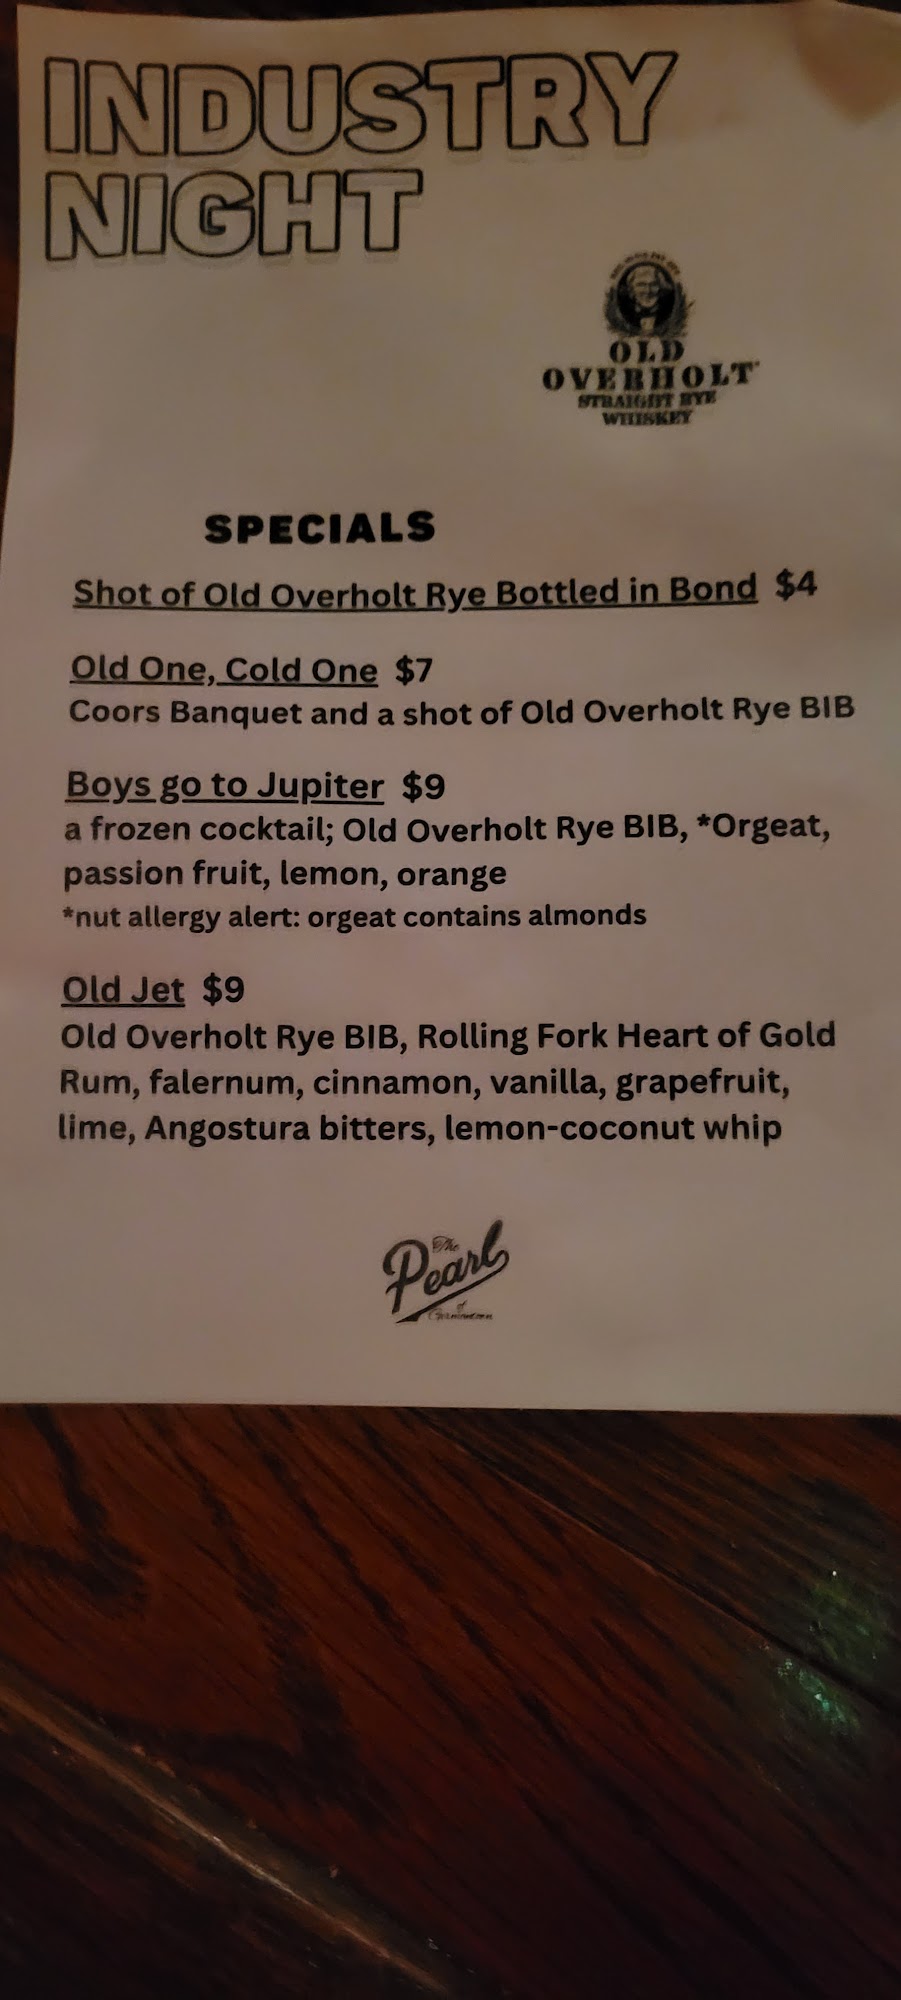 INDUSTRY
NIGHT
OLD
OVERHOLT
STRAIGHT RYE
WHISKEY
SPECIALS
Shot of Old Overholt Rye Bottled in Bond $4
Old One, Cold One $7
Coors Banquet and a shot of Old Overholt Rye BIB
Boys go to Jupiter $9
a frozen cocktail; Old Overholt Rye BIB, *Orgeat,
passion fruit, lemon, orange
*nut allergy alert: orgeat contains almonds
Old Jet $9
Old Overholt Rye BIB, Rolling Fork Heart of Gold
Rum, falernum, cinnamon, vanilla, grapefruit,
lime, Angostura bitters, lemon-coconut whip
The
Pearl
of